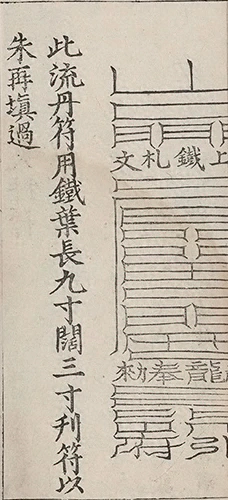 上鐵札文
龍奉勑
引府
此流丹符用鐵葉長九寸闊三寸刋符以
朱再填過